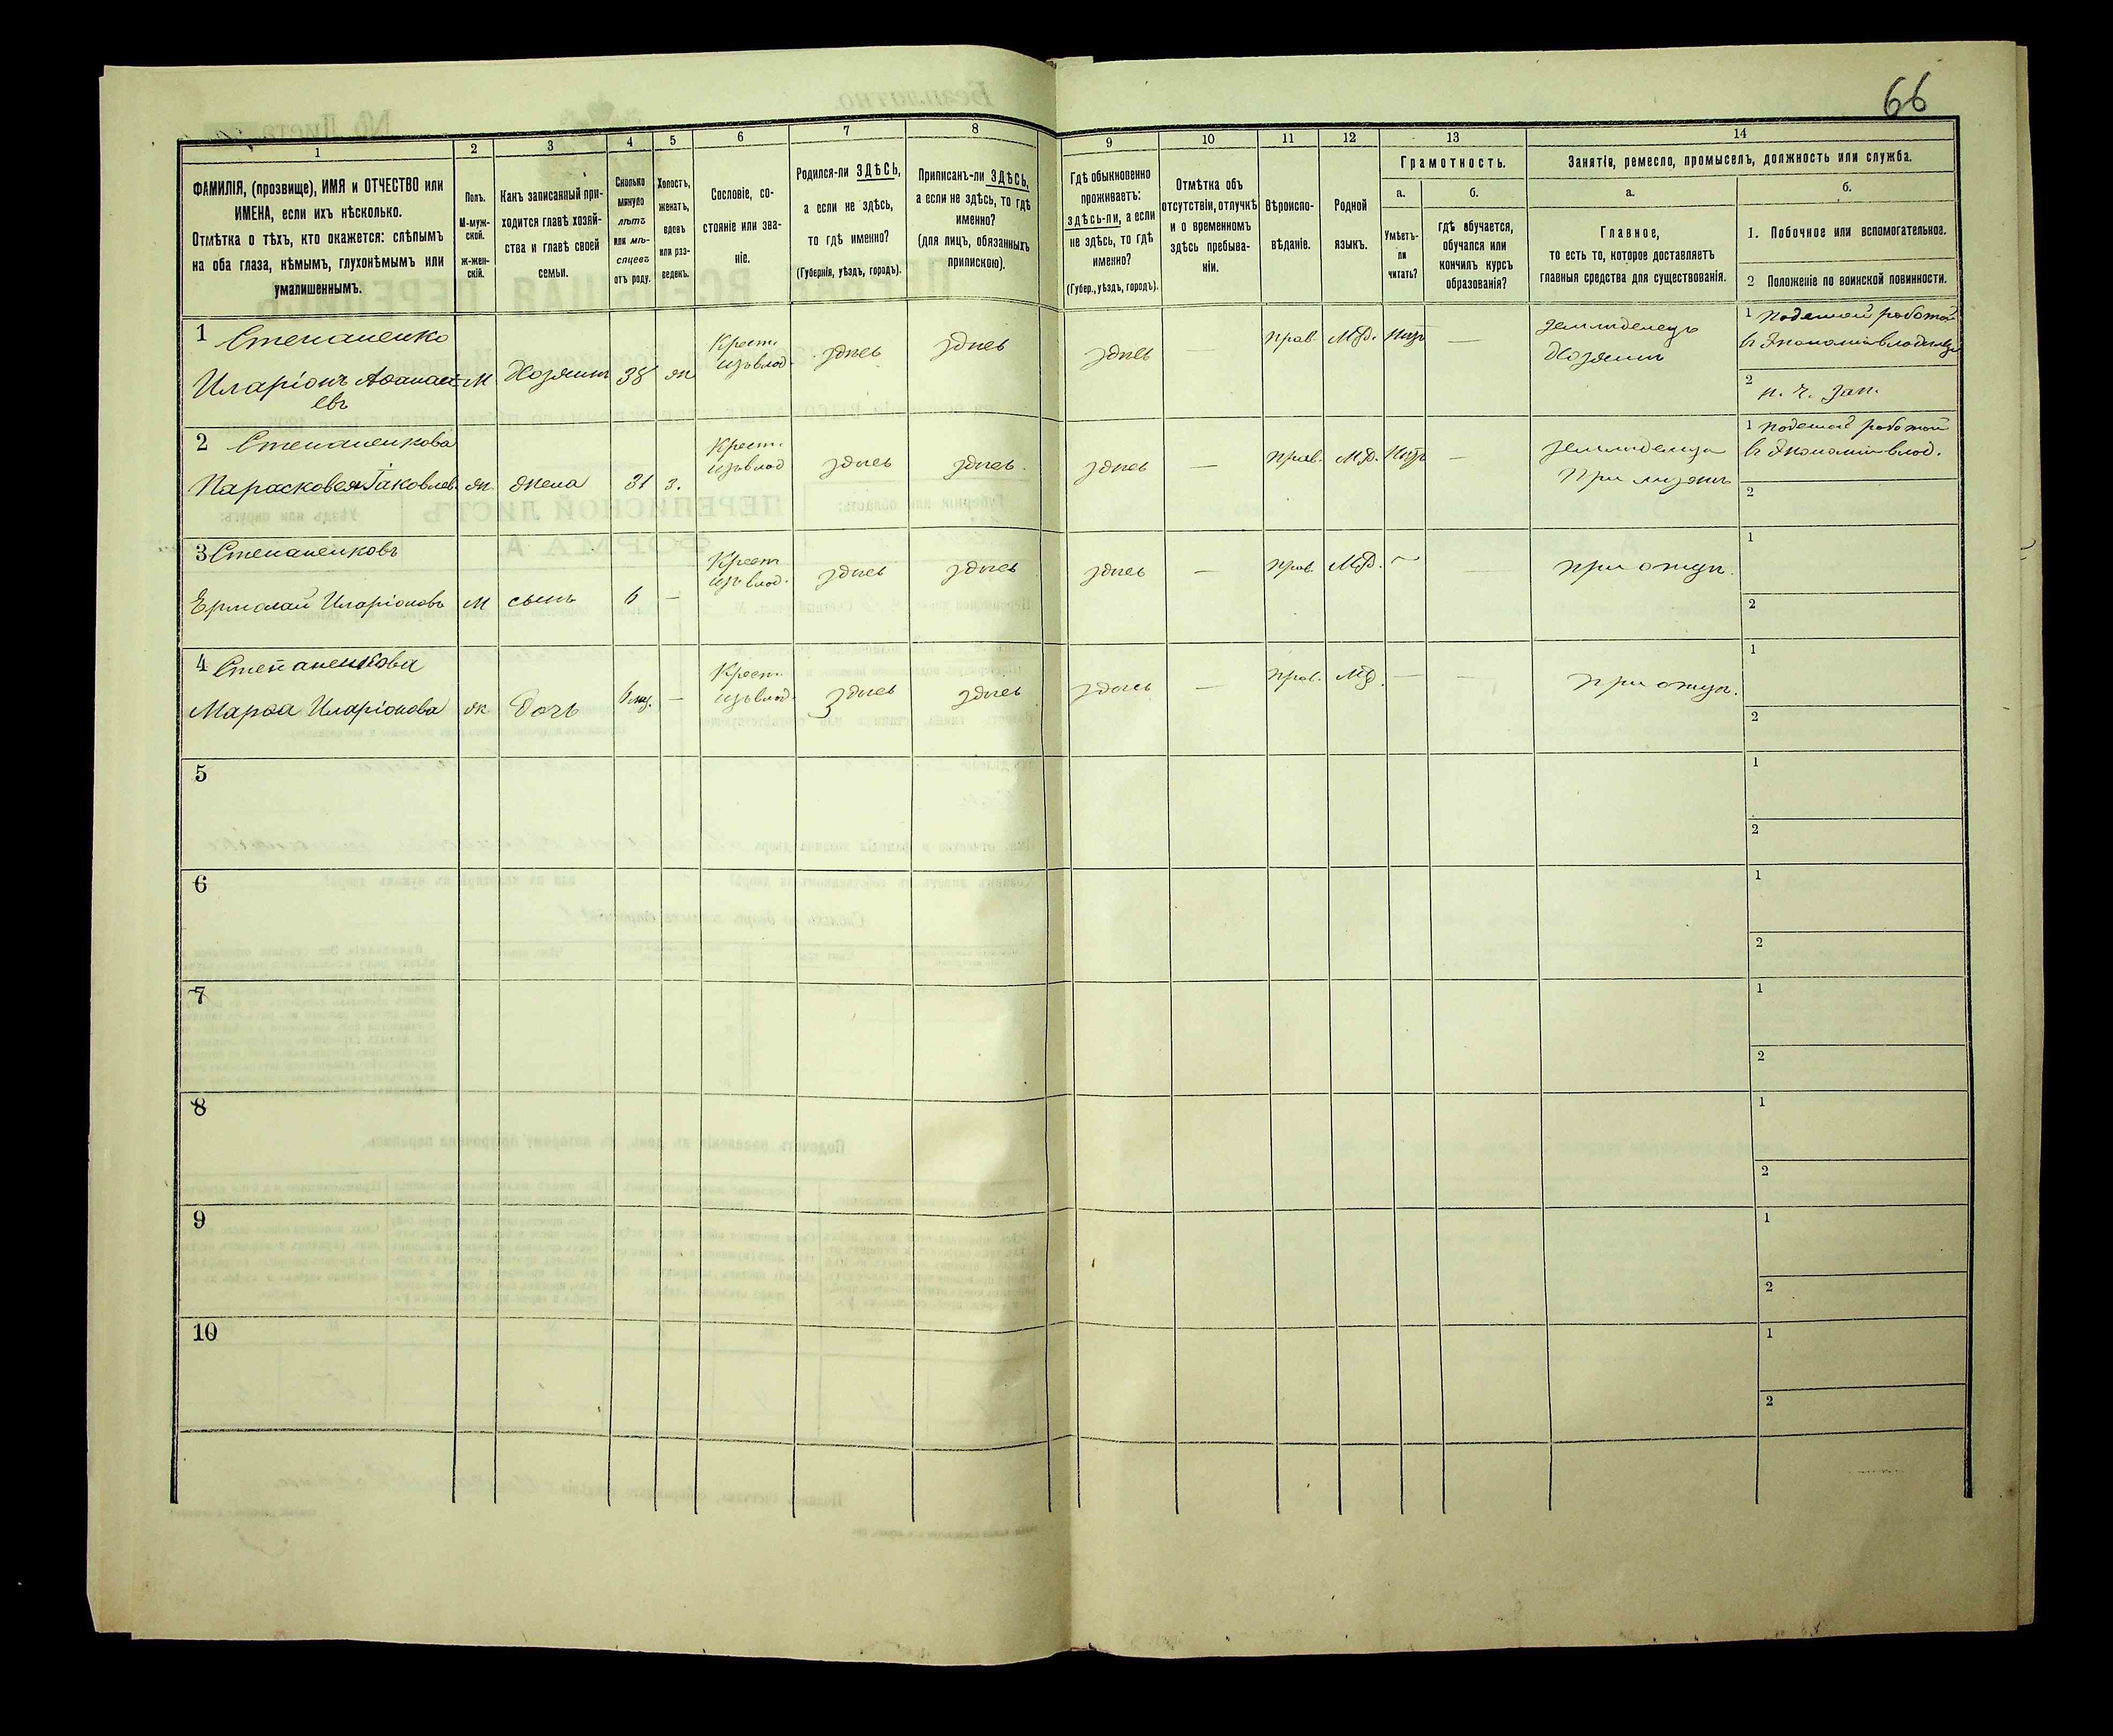 66
1
2
3
4
5
6
7
8
9
10
11
12
13
14
ФАМИЛІЯ, (прозвище), ИМЯ и ОТЧЕСТВО или
ИМЕНА, если ихъ нѣсколько.
Отмѣтка о тѣхъ, кто окажется: слѣпымъ
на оба глаза, нѣмымъ, глухонѣмымъ или
умалишеннымъ.
Полъ.
М-муж-
ской.
ж-жен-
скій.
Какъ записанный при-
ходится главѣ хозяй-
ства и главѣ своей
семьи.
Сколько
минуло
лѣтъ
или мѣ-
сяцевъ
отъ роду.
Холостъ,
женатъ,
вдовъ
или раз-
веденъ.
Сословіе, со-
стояніе или зва-
ніе.
Родился-ли ЗДѢСЬ,
а если не здѣсь,
то гдѣ именно?
(Губернія, уѣздъ, городъ).
Приписанъ-ли ЗДѢСЬ,
а если не здѣсь, то гдѣ
именно?
(для лицъ, обязанныхъ
припискою).
Гдѣ обыкновенно
проживаетъ:
здѣсь-ли, а если
не здѣсь, то гдѣ
именно?
(Губер., уѣздъ, городъ).
Отмѣтка объ
отсутствіи, отлучкѣ
и о временномъ
здѣсь пребыва-
ніи.
Вѣроиспо-
вѣданіе.
Родной
языкъ.
Грамотность.
а.
Умѣетъ-
ли
читать?
б.
гдѣ обучается,
обучался или
кончилъ курсъ
образованія?
Занятія, ремесло, промыселъ, должность или служба.
а.
Главное,
то есть то, которое доставляетъ
главныя средства для существованія.
б.
1. Побочное или вспомогательное.
2 Положеніе по воинской повинности.
1 Степаненко
Иларіонъ Аѳанась-
евъ
М
Хозяинъ
38
ж
Крест.
изъ влад.
здѣсь
здѣсь
здѣсь
—
Прав.
МР.
Нѣтъ
—
Земледелецъ
Хозяинъ
1 Поденной работой
въ Экономіи
2 н. ч. зап.
2 Степаненкова
Парасковея Іаковлев.
ж
жена
31
з.
Крест.
изъ влад
здѣсь
здѣсь.
здѣсь
—
Прав.
МР.
Нѣтъ
—
При мужѣ
1 Поденной работой
въ Экономіи влад.
2
3 Степаненковъ
Ермолай Иларіоновъ
М
сынъ
6
—
Крест
изъ влад.
здѣсь
здѣсь
здѣсь
—
Прав.
МР.
—
—
при отцѣ.
1
2
4 Степаненкова
Марѳа Иларіонова
ж
Дочь
6 мѣ.
—
Крест.
изъ влад.
здѣсь
здѣсь
здѣсь
—
Прав.
МР.
—
—
при отцѣ.
1
2
5
1
2
6
1
2
7
1
2
8
1
2
9
1
2
10
1
2